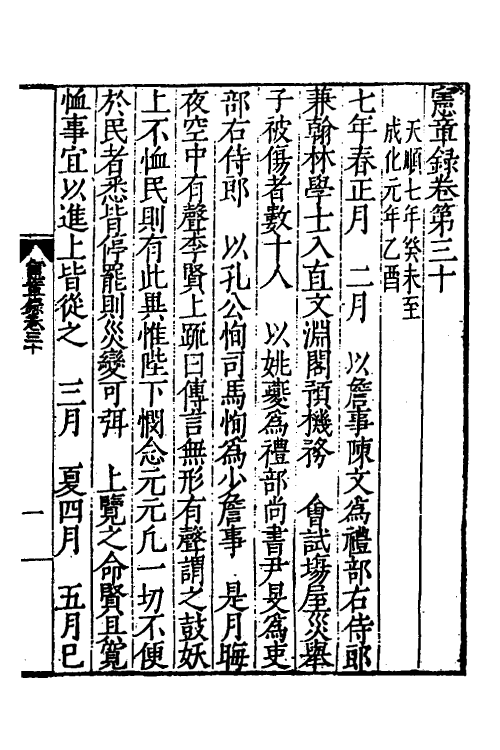 憲章録卷第三十
天順七年癸未至
成化元年乙酉
七年春正月　二月　以詹事陳文爲禮部右侍郎
兼翰林學士入直文淵閣預機務　會試塲屋災舉
子被傷者數十人　以姚夔爲禮部尚書尹旻爲吏
部右侍郎　以孔公恂司馬恂爲少詹事　是月晦
夜空中有聲李賢上疏曰傳言無形有聲謂之鼓妖
上不恤民則有此異惟陛下憫念元元凡一切不便
於民者悉皆停罷則災變可弭　上覽之命賢具寬
恤事宜以進上皆從之　三月　夏四月　五月巳
憲章録卷三十
一